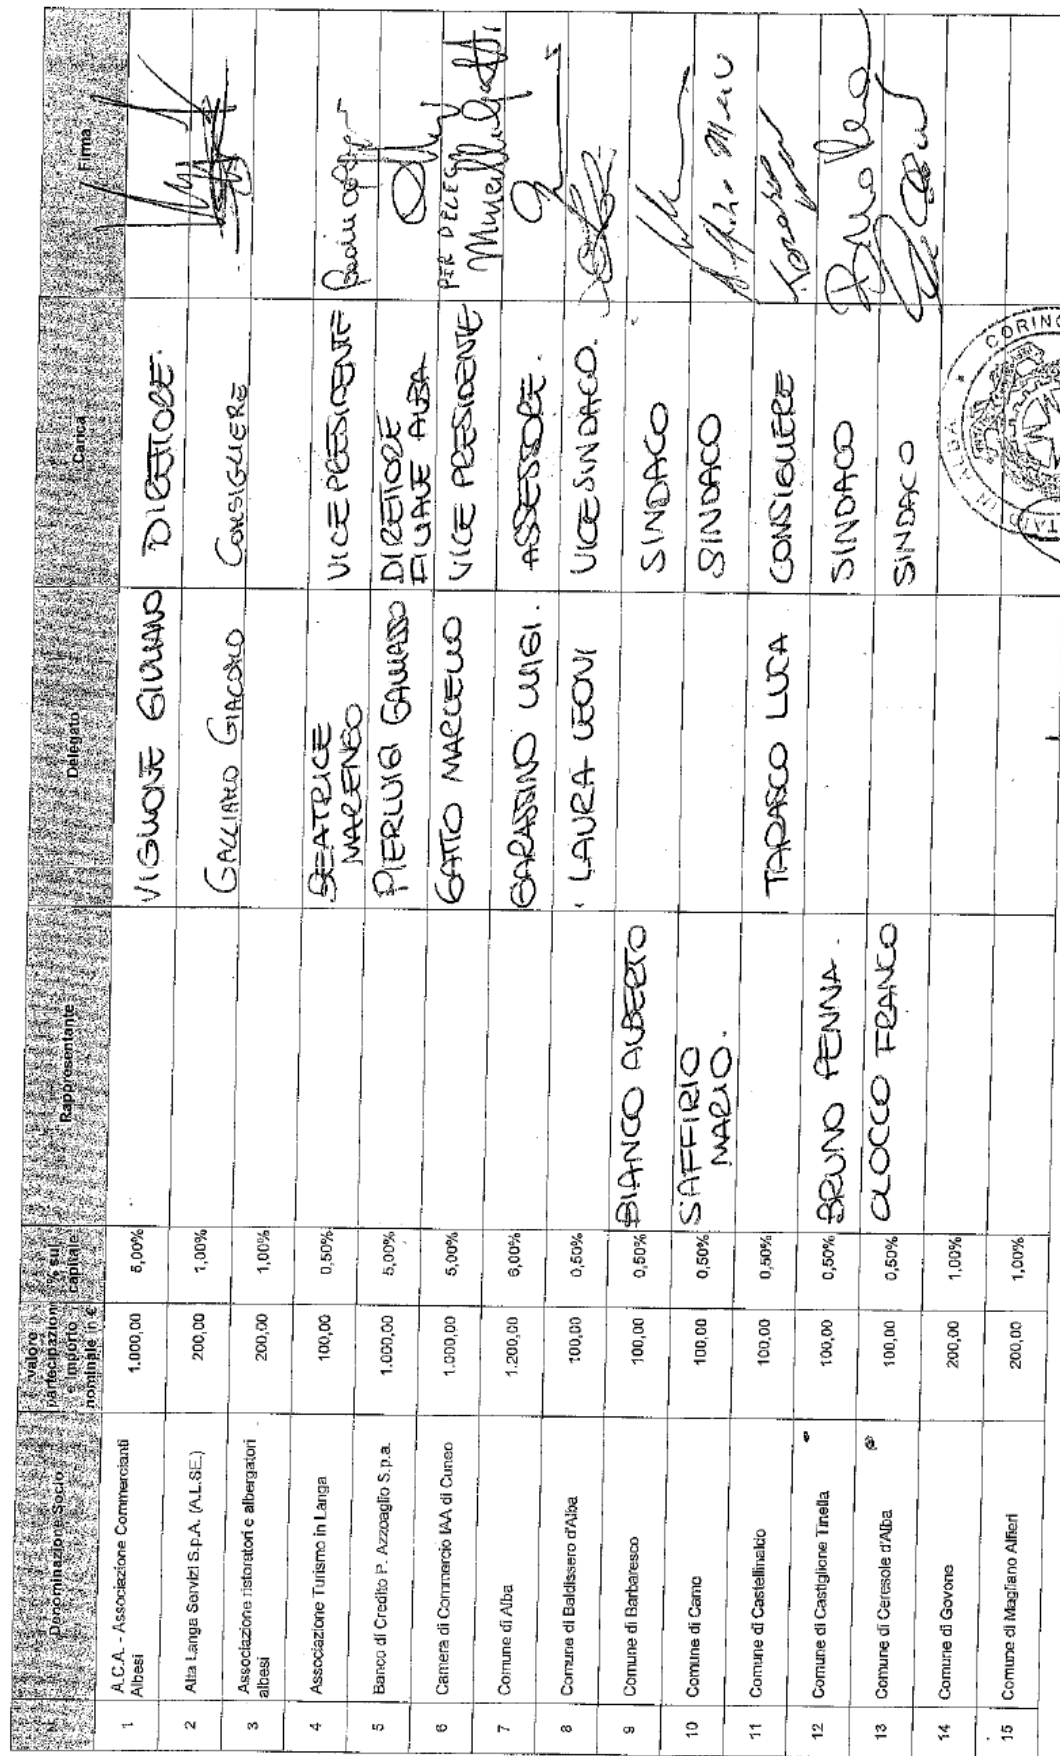 N. Denominazione Socio valore partecipazioni e importo nominale in € % sul capitale Rappresentante Delegato Carica Firma
1 A.C.A. - Associazione Commercianti Albesi 1.000,00 5,00% VIGLIONE GIULIANO DIRETTORE.
2 Alta Langa Servizi S.p.A. (A.L.SE.) 200,00 1,00% GALLIANO GIACOMO CONSIGLIERE
3 Associazione ristoratori e albergatori albesi 200,00 1,00%
4 Associazione Turismo in Langa 100,00 0,50% BEATRICE MARENGO VICE PRESIDENTE
5 Banco di Credito P. Azzoaglio S.p.a. 1.000,00 5,00% PIERLUIGI GALLIASSO DIRETTORE FILIALE ALBA
6 Camera di Commercio IAA di Cuneo 1.000,00 5,00% GATTO MARCELLO VICE PRESIDENTE PER DELEGA
7 Comune di Alba 1.200,00 6,00% GARASSINO LUIGI. ASSESSORE.
8 Comune di Baldissero d'Alba 100,00 0,50% LAURA LEONI VICESINDACO.
9 Comune di Barbaresco 100,00 0,50% BIANCO ALBERTO SINDACO
10 Comune di Camo 100,00 0,50% SAFFIRIO MARIO. SINDACO
11 Comune di Castellinaldo 100,00 0,50% TARASCO LUCA CONSIGLIERE
12 Comune di Castiglione Tinella 100,00 0,50% BRUNO PENNA. SINDACO
13 Comune di Ceresole d'Alba 100,00 0,50% OLOCCO FRANCO SINDACO
14 Comune di Govone 200,00 1,00%
15 Comune di Magliano Alfieri 200,00 1,00%